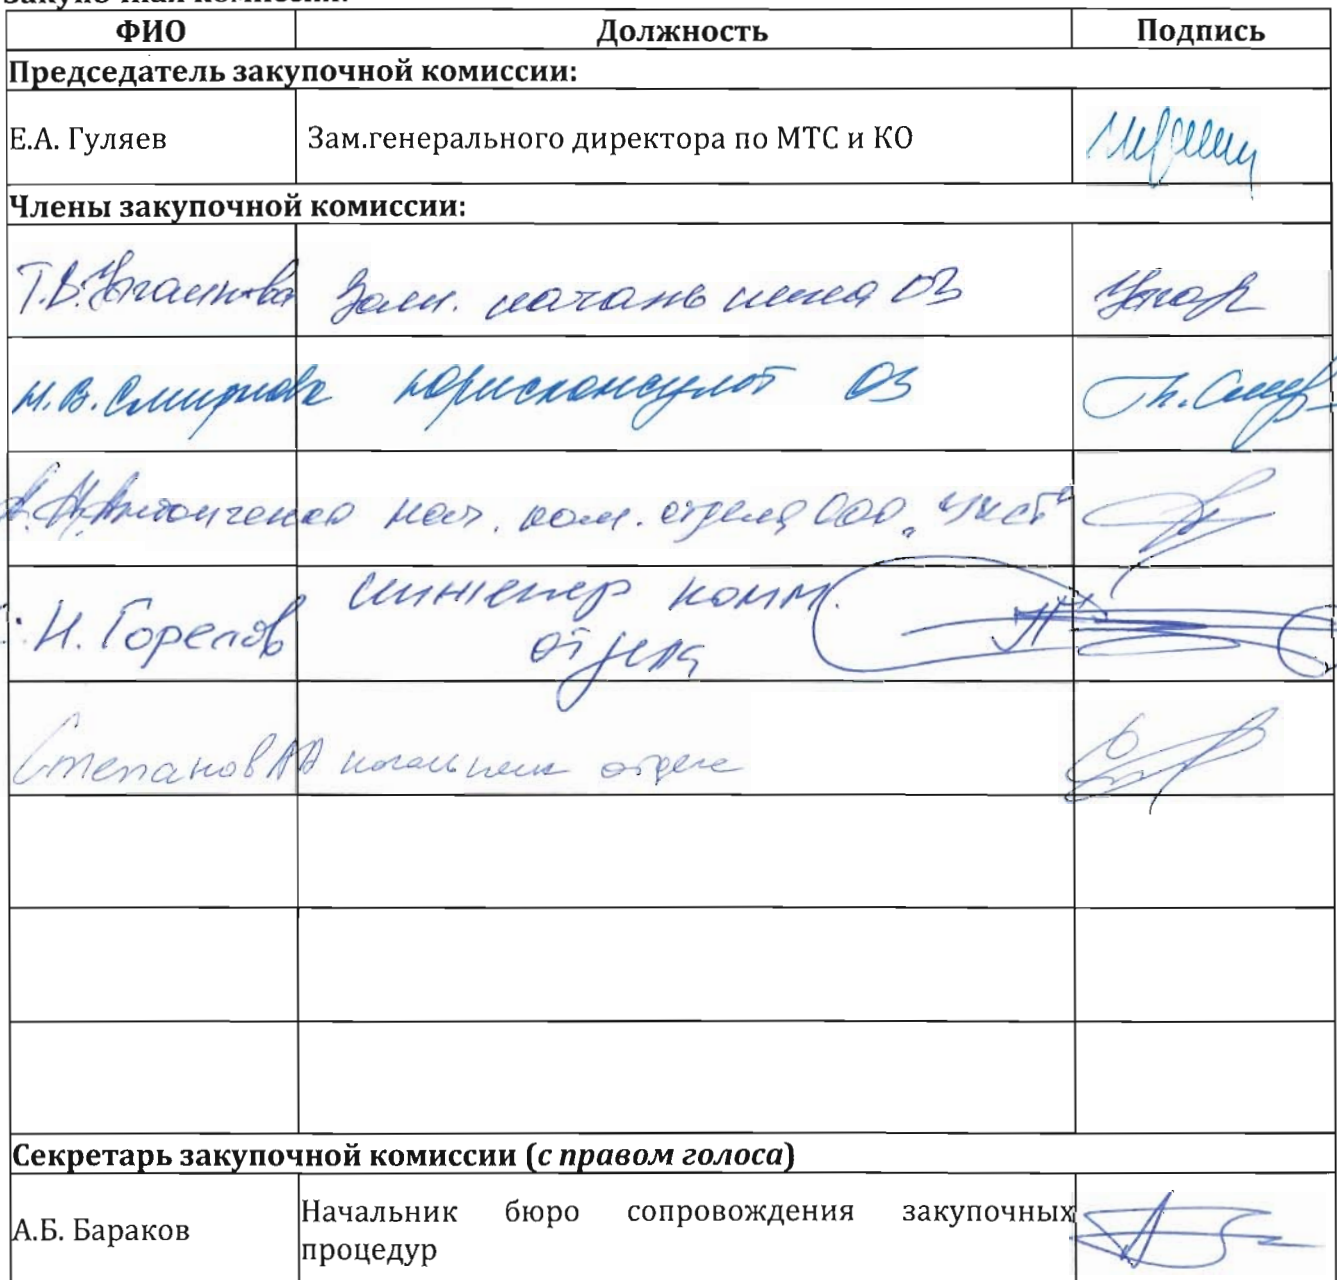 ФИО Должность Подпись
Председатель закупочной комиссии:
Е.А. Гуляев Зам.генерального директора по МТС и КО
Члены закупочной комиссии:
Т.В. Зам. начальника ОЗ
Н.В. Смирнова юрисконсульт ОЗ
нач. ком. отдела ООО
Н. Горелов инженер комм.
отдела
Степанов АА начальник отдела
Секретарь закупочной комиссии (с правом голоса)
А.Б. Бараков Начальник бюро сопровождения закупочных
процедур